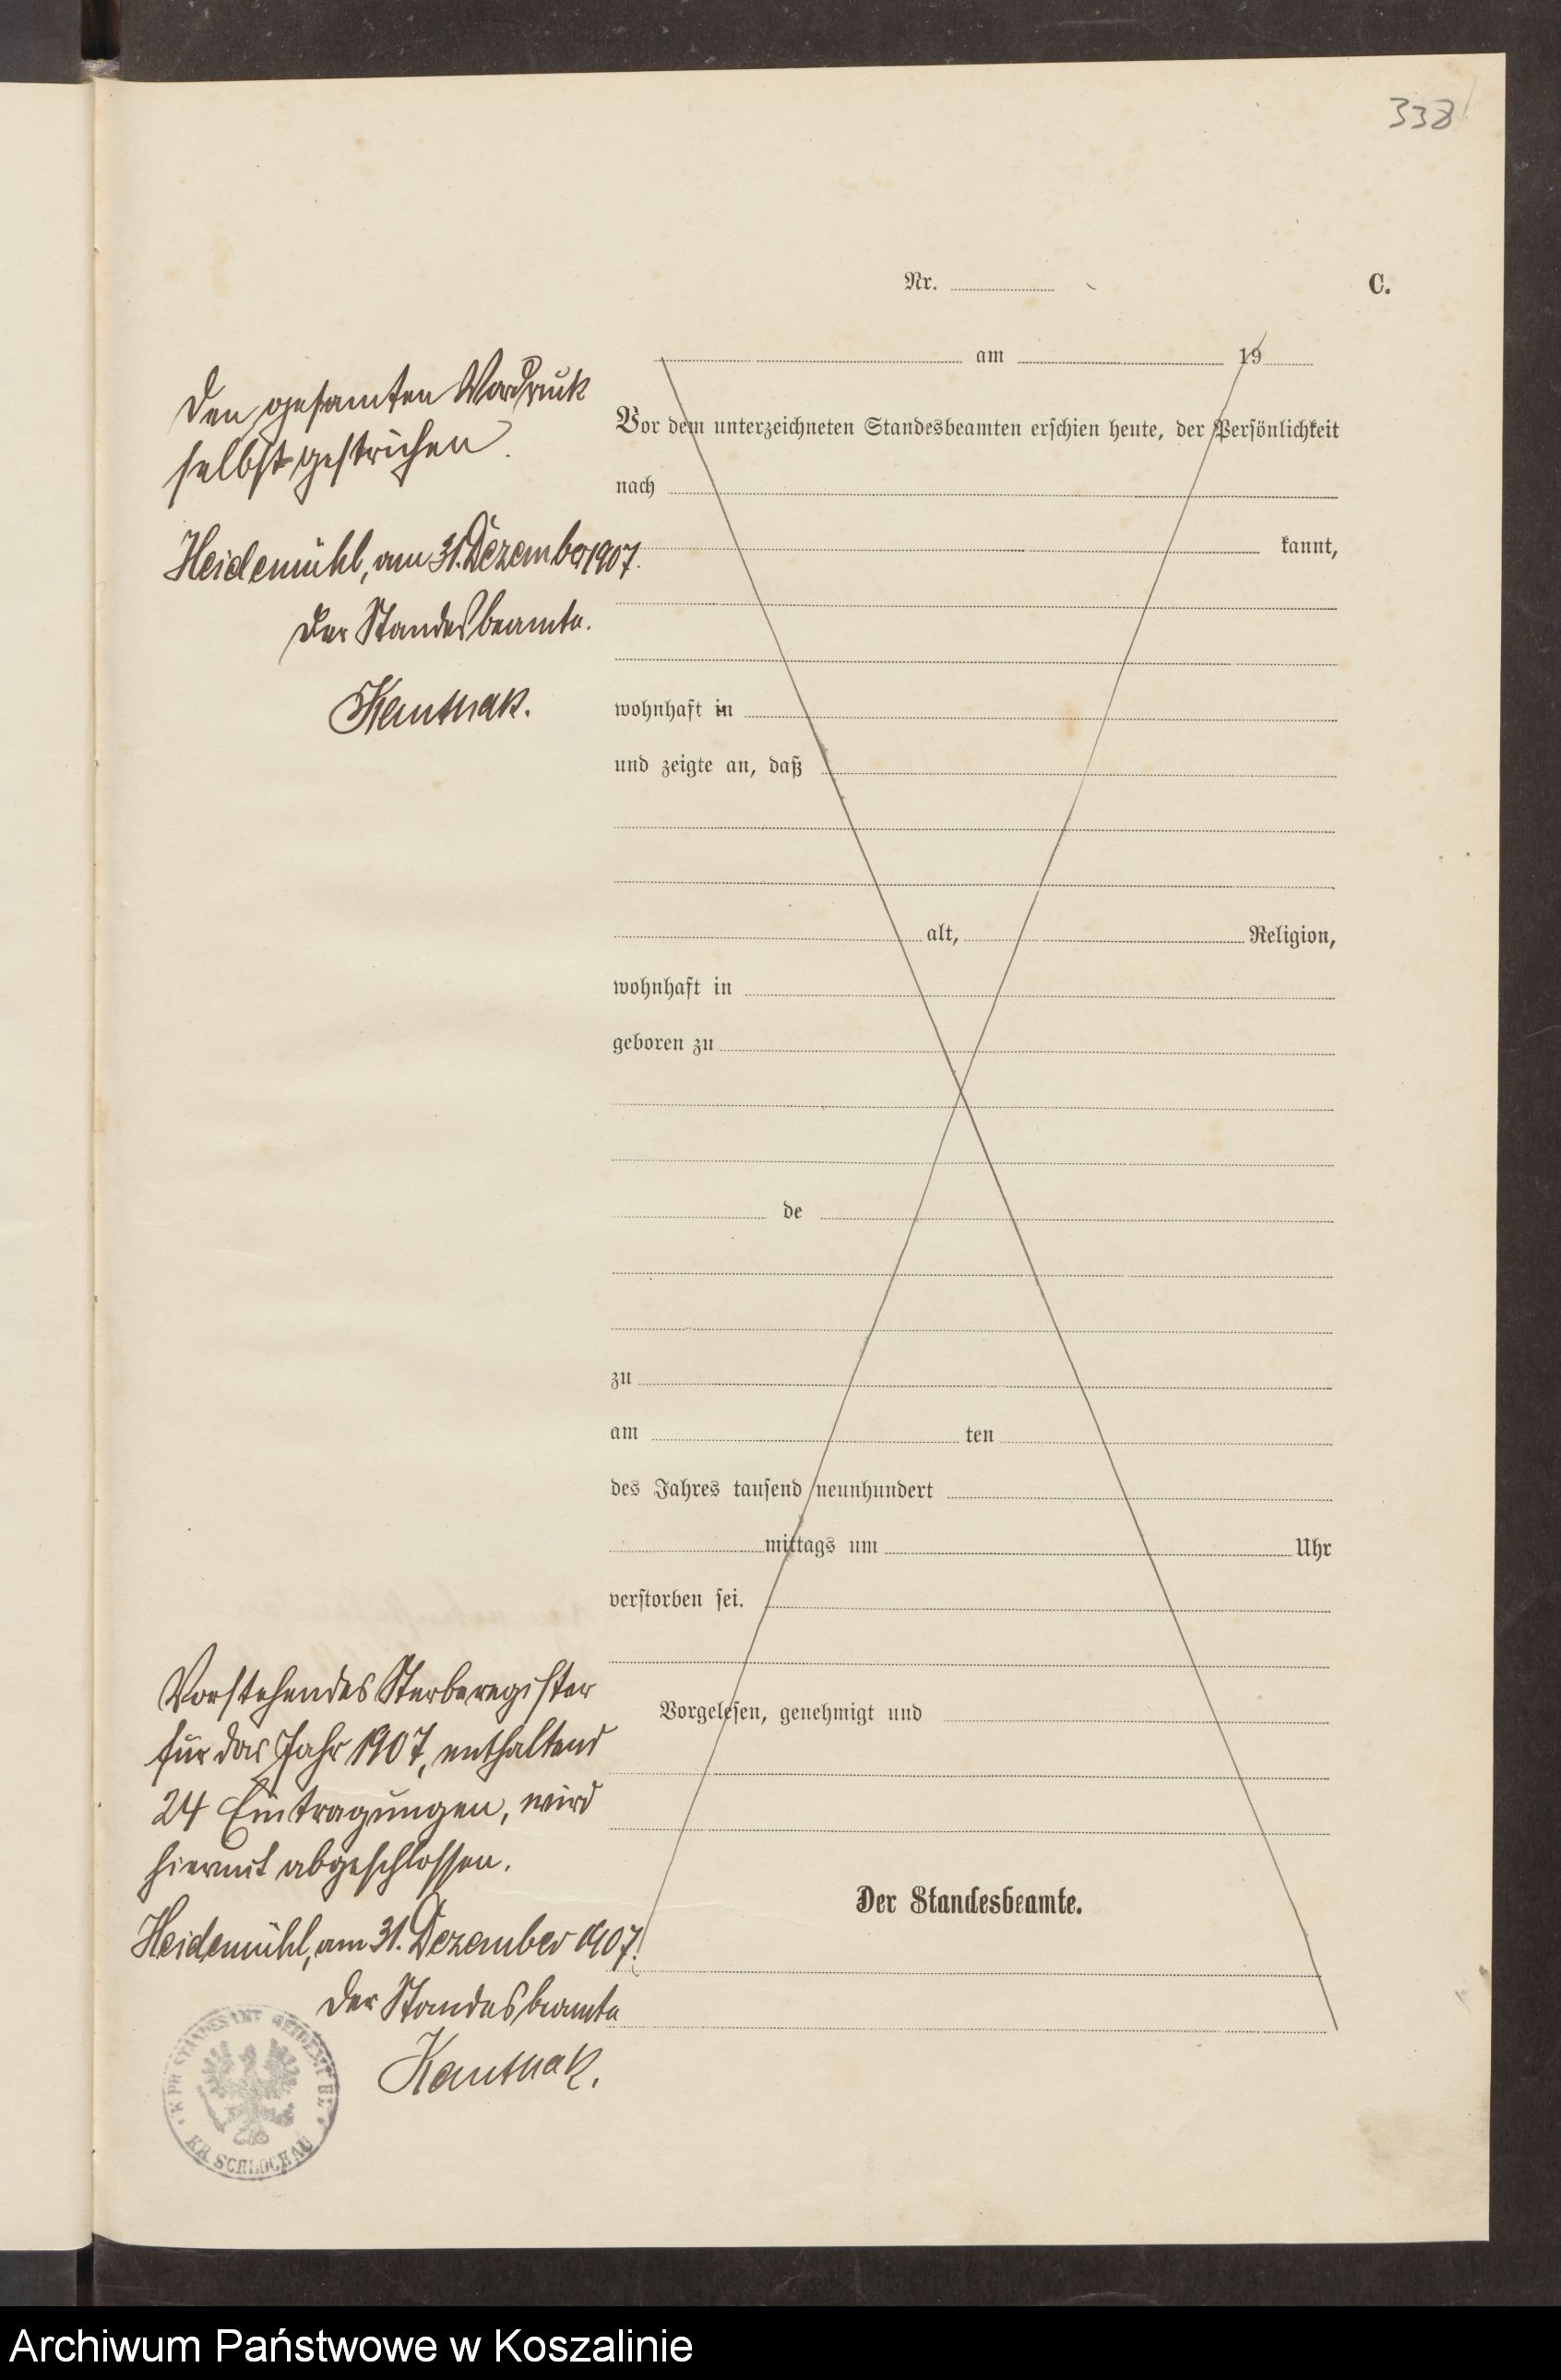 338
Nr.
C.
am 19
Den gesamten Vordruck
selbst gestrichen.
Heidemühl, am 31. Dezember 1907.
Der Standesbeamte.
Vor dem unterzeichneten Standesbeamten erschien heute, der Persönlichkeit
nach
kannt,
wohnhaft in
und zeigte an, daß
alt, Religion,
wohnhaft in
geboren zu
de
zu
am ten
des Jahres tausend neunhundert
mittags um Uhr
verstorben sei.
Vorgelesen, genehmigt und
Der Standesbeamte.
Vorstehendes Sterberegister
für das Jahr 1907, enthaltend
24 Eintragungen, wird
hiermit abgeschlossen.
Heidemühl, am 31. Dezember 1907.
Der Standesbeamte
KR. SCHLOCHAU
Archiwum Państwowe w Koszalinie